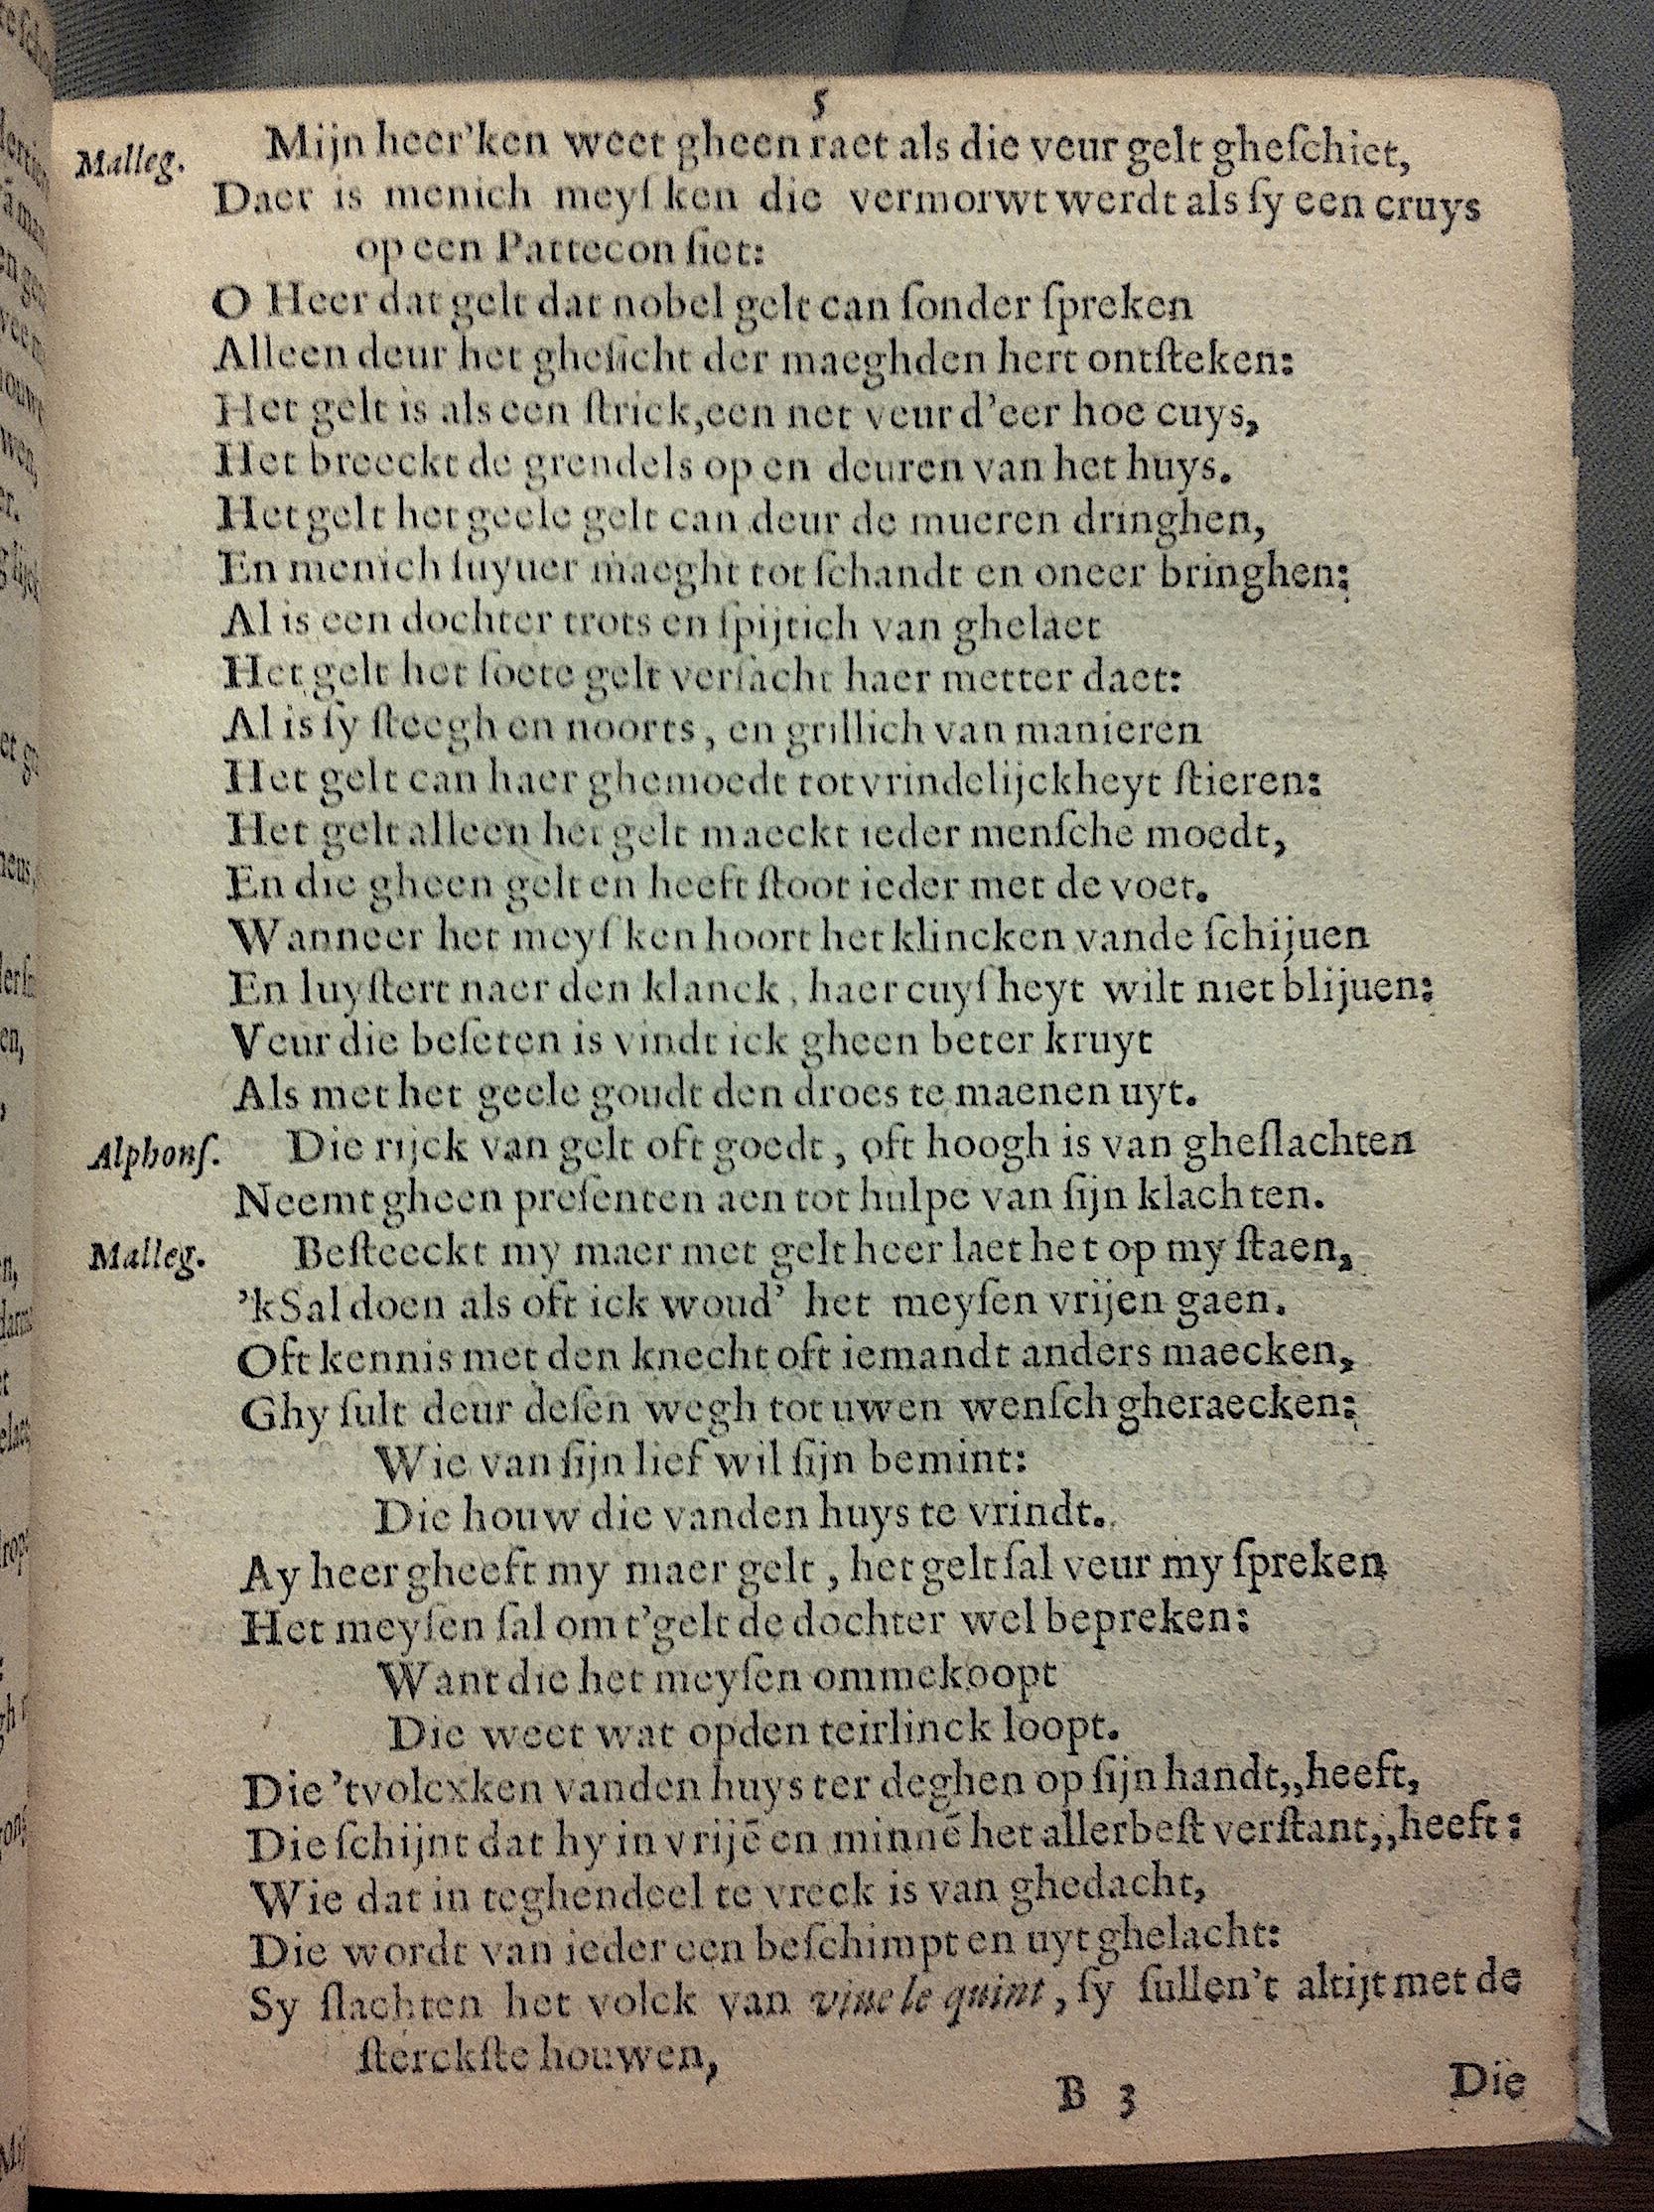 5
Malleg. Mijn heer'ken weet gheen raet als die veur gelt gheſchiet,
Daer is menich meyſken die vermorwt werdt als ſy een cruys
op een Pattecon ſiet:
O Heer dat gelt dat nobel gelt can ſonder ſpreken
Alleen deur het gheſicht der maeghden hert ontſteken:
Het gelt is als een ſtrick, een net veur d'eer hoe cuys,
Het breeckt de grendels op en deuren van het huys.
Het gelt het geele gelt can deur de mueren dringhen,
En menich ſuyuer maeght tot ſchandt en oneer bringhen:
Al is een dochter trots en ſpijtich van ghelaet
Het gelt het ſoete gelt verſacht haer metter daet:
Al is ſy ſteegh en noorts, en grillich van manieren
Het gelt can haer ghemoedt tot vrindelijckheyt ſtieren:
Het gelt alleen het gelt maeckt ieder menſche moedt,
En die gheen gelt en heeft ſtoot ieder met de voet.
Wanneer het meyſken hoort het klincken vande ſchijuen
En luyſtert naer den klanck, haer cuyſheyt wilt niet blijuen:
Veur die beſeten is vindt ick gheen beter kruyt
Als met het geele goudt den droes te maenen uyt.
Alphonſ. Die rijck van gelt oft goedt, oft hoogh is van gheſlachten
Neemt gheen preſenten aen tot hulpe van ſijn klachten.
Malleg. Beſteeckt my maer met gelt heer laet het op my ſtaen,
'kSal doen als oft ick woud' het meyſen vrijen gaen.
Oft kennis met den knecht oft iemandt anders maecken,
Ghy ſult deur deſen wegh tot uwen wenſch gheraecken:
Wie van ſijn lief wil ſijn bemint:
Die houw die vanden huys te vrindt.
Ay heer gheeft my maer gelt, het gelt ſal veur my ſpreken
Het meyſen ſal om t'gelt de dochter wel bepreken:
Want die het meyſen ommekoopt
Die weet wat opden teirlinck loopt.
Die 'tvolcxken vanden huys ter deghen op ſijn handt,,heeft,
Die ſchijnt dat hy in vrijē en minnē het allerbeſt verſtant,,heeft:
Wie dat in teghendeel te vreck is van ghedacht,
Die wordt van ieder een beſchimpt en uyt ghelacht:
Sy ſlachten het volck van viue le quint, ſy ſullen't altijt met de
ſterckſte houwen,
B 3 Die